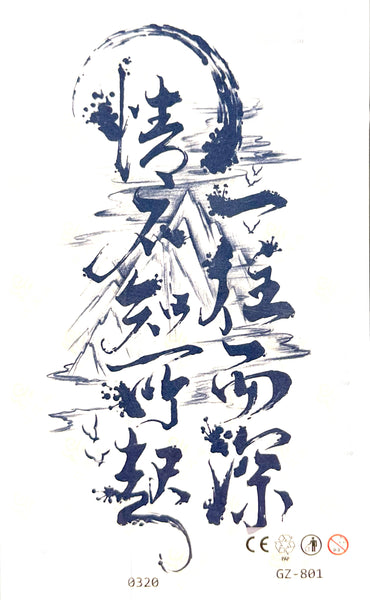 情不知所起
一往而深
CE
PAP
0320
GZ-801